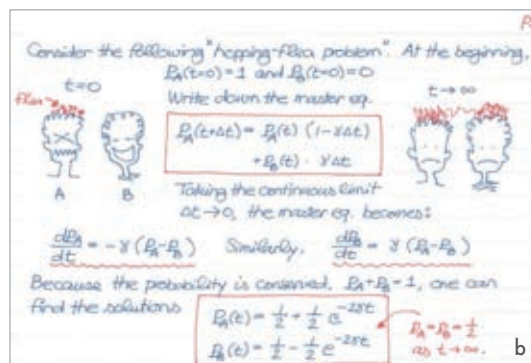 Consider the following "hopping-flea problem". At the beginning,
P_A(t=0)=1 and P_B(t=0)=0
t=0
flea
Write down the master eq.
t→∞
P_A(t+Δt) = P_A(t) (1-γΔt)
+P_B(t) · γΔt
A B
Taking the continuous limit
Δt→0, the master eq. becomes:
dP_A/dt = -γ(P_A-P_B) Similarly, dP_B/dt = γ(P_A-P_B)
Because the probability is conserved, P_A+P_B=1, one can
find the solutions
P_A(t) = 1/2 + 1/2 e^{-2γt}
P_B(t) = 1/2 - 1/2 e^{-2γt}
P_A=P_B=1/2
as t→∞.
b